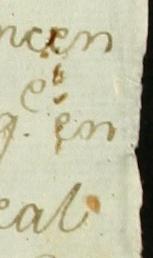 ncen
g.e en
eal